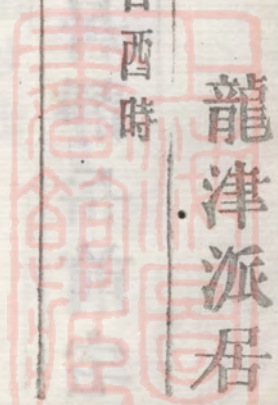 龍津派居
酉時